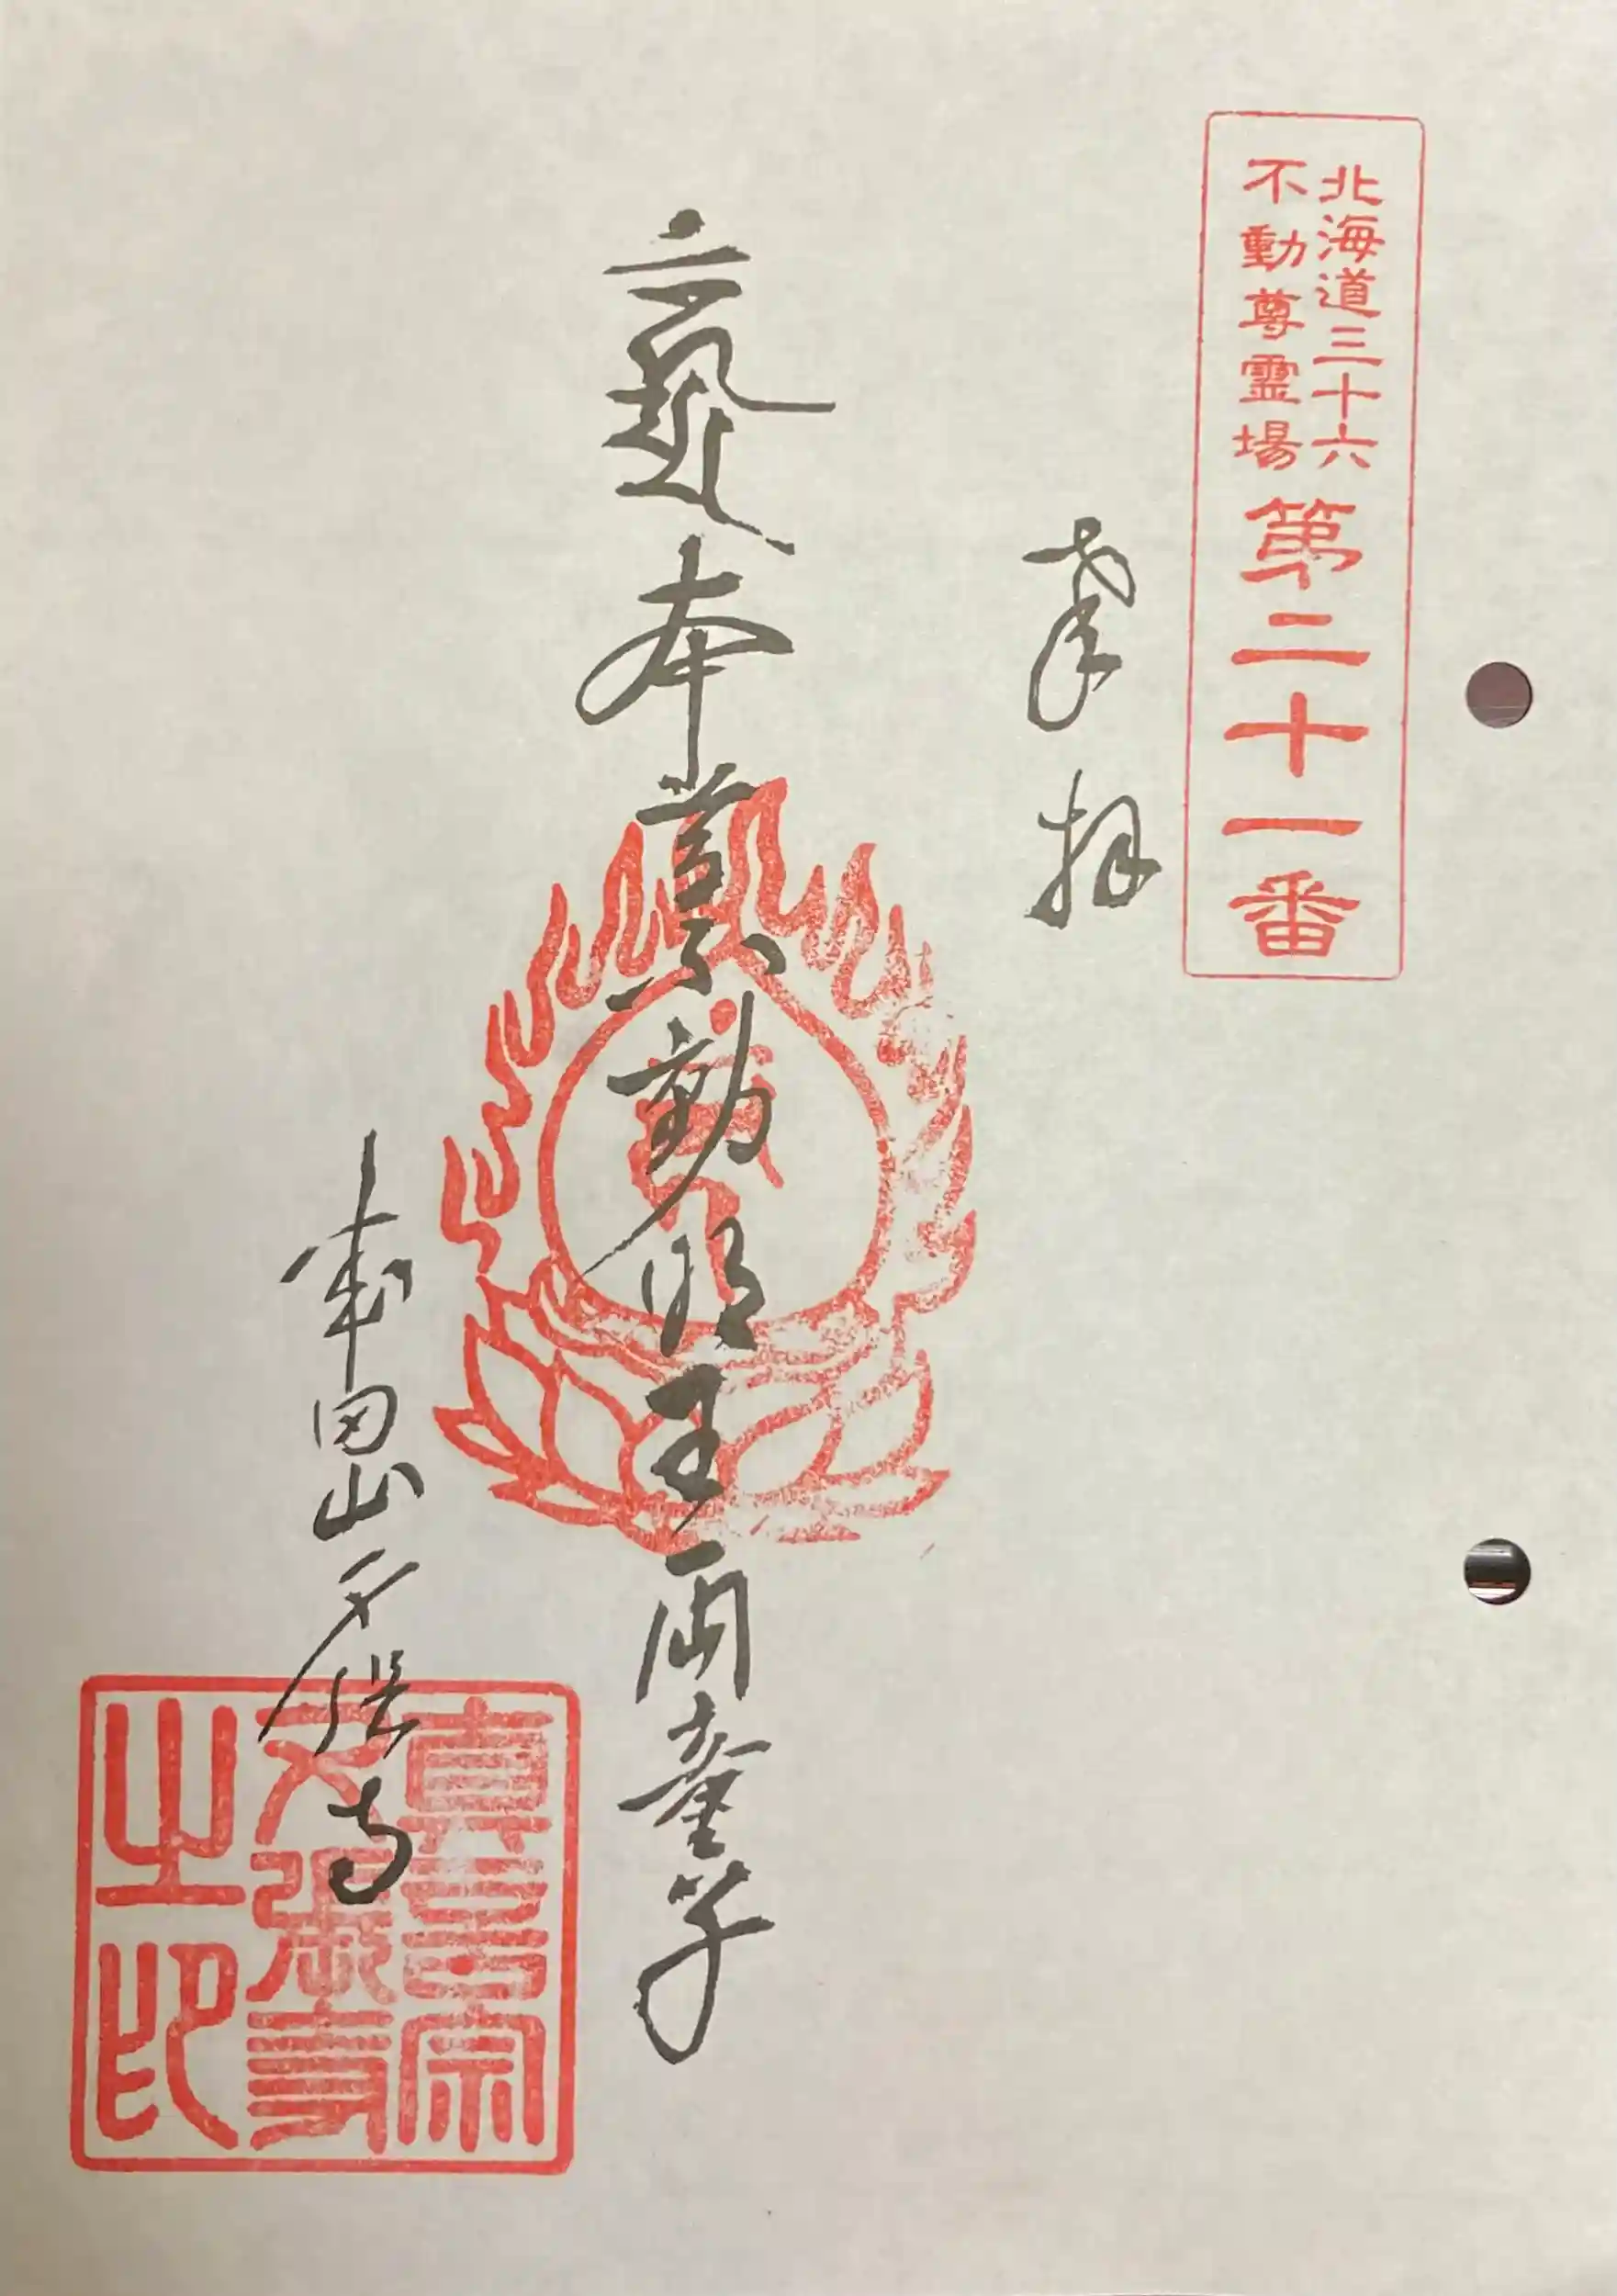 北海道三十六
不動尊霊場
第二十一番
奉拝
本尊不動明王両童子
田山
寺
真言宗
寺
之印